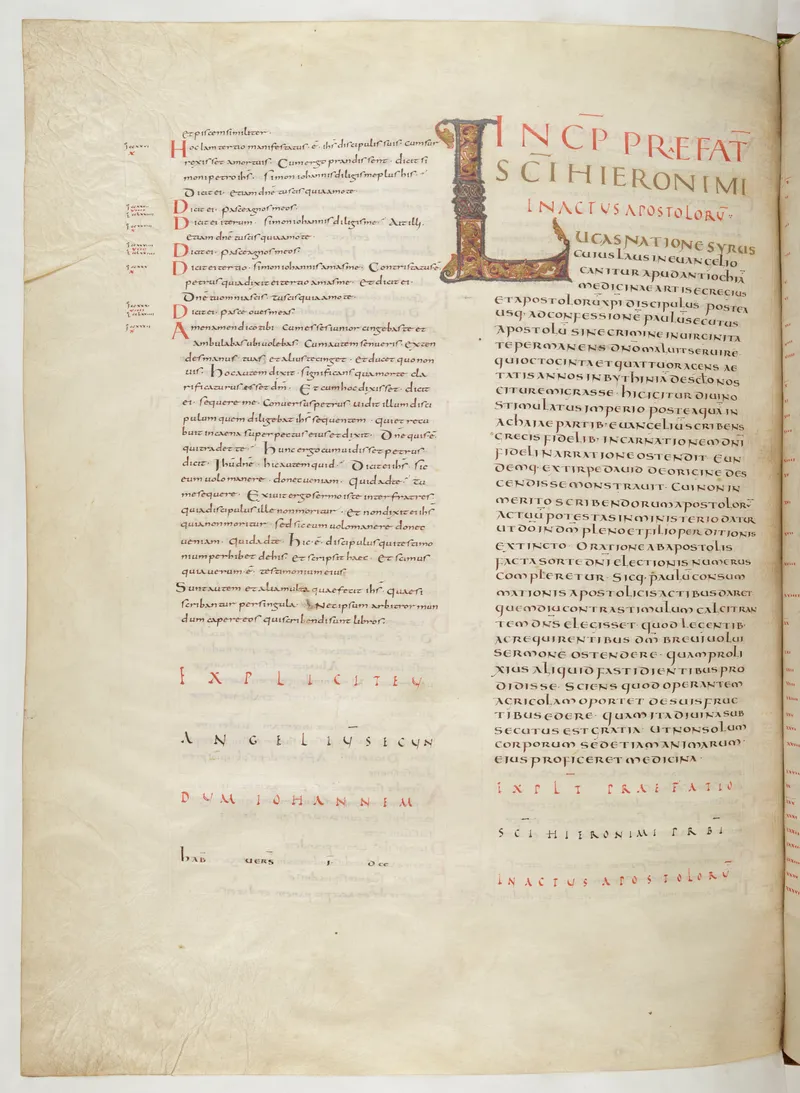 et piscem similiter·
Hoc iam tertio manifestatus· ē· ihs discipulis suis· cum sur
rexisset a mortuis· Cum ergo prandissent· dicit si
moni petro ihs· simon iohannis diligis me plus his·
Dicit ei· etiam dne tu scis quia amo te·
Dicit ei· pasce agnos meos·
Dicit ei iterum· simon iohannis diligis me· Ait illi·
etiam dne tu scis quia amo te·
Dicit ei· pasce agnos meos·
Dicit ei tertio· simon iohannis amas me· Contristatus ē
petrus quia dixit ei tertio amas me· et dicit ei·
Dne tu omnia scis· tu scis quia amo te·
Dicit ei· pasce oues meas·
Amen amen dico tibi· Cum esses iunior cingebas te et
ambulabas ubi uolebas· Cum autem senueris· exten
des manus tuas· et alius te cinget· et ducet quo non
uis· Hoc autem dixit· significans qua morte cla
rificaturus esset dm· Et cum hoc dixisset· dicit
ei· sequere me· Conuersus petrus uidit illum disci
pulum quem diligebat ihs sequentem· qui et recu
buit in caena super pectus eius et dixit· Dne quis ē
qui tradet te· Hunc ergo cum uidisset petrus
dicit· Ihu dne· hic autem quid· Dicit ei ihs· sic
eum uolo manere· donec ueniam· quid ad te· tu
me sequere· Exiuit ergo sermo iste inter fratres
quia discipulus ille non moritur· et non dixit ei ihs
quia non moritur· sed sic eum uolo manere donec
ueniam· quid ad te· Hic· ē· discipulus qui testimo
nium perhibet de his· et scripsit haec· et scimus
quia uerum· ē· testimonium eius·
Sunt autem et alia multa quae fecit ihs· quae si
scribantur per singula· Nec ipsum arbitror mun
dum capere eos qui scribendi sunt libros·
EXPLICIT EU
ANGELIU SECUN
DUM IOHANNEM
hab uers
INCP PREFAT
SCI HIERONIMI
IN ACTUS APOSTOLORU·
LUCAS NATIONE SYRUS
CUIUS LAUS IN EUANGELIO
CANITUR APUD ANTIOCHIA
MEDICINAE ARTIS EGREGIUS
ET APOSTOLORU XPI DISCIPULUS· POSTEA
USQ· AD CONFESSIONE PAULU SECUTUS
APOSTOLU SINE CRIMINE IN UIRGINITA
TE PERMANENS DNO MALUIT SERUIRE
QUI OCTOGINTA ET QUATTUOR AGENS AE
TATIS ANNOS IN BYTHINIA DESCDO NOS
CITUR EMIGRASSE· HIC IGITUR DIUINO
STIMULATUS IMPERIO POSTEAQUA IN
ACHAIAE PARTIB· EUANGELIU SCRIBENS
GRECIS FIDELIB· INCARNATIONEM DNI
FIDELI NARRATIONE OSTENDIT· EUN
DEMQ· EX TIRPE DAUID DE ORIGINE DES
CENDISSE MONSTRAUIT· CUI NON IN
MERITO SCRIBENDORUM APOSTOLOR
ACTUU POTESTAS IN MINISTERIO DATUR
UT DO IN DM PLENO ET FILIO PERDITIONIS
EXTINCTO· ORATIONE AB APOSTOLIS
FACTA SORTE DNI ELECTIONIS NUMERUS
COMPLERETUR· SICQ· PAULU CONSUM
MATIONIS APOSTOLICIS ACTIBUS DARET
QUEM DIU CONTRA STIMULUM CALCITRAN
TEM DNS ELEGISSET QUOD LEGENTIB·
AC REQUIRENTIBUS DM BREUI UOLUI
SERMONE OSTENDERE· QUAM PROLI
XIUS ALIQUID FASTIDIENTIBUS PRO
DIDISSE· SCIENS QUOD OPERANTEM
AGRICOLAM OPORTET DE SUIS FRUC
TIBUS EDERE· QUAM ITA DIUINA SUB
SECUTUS EST GRATIA· UT NON SOLUM
CORPORUM SED ETIAM ANIMARUM·
EIUS PROFICERET MEDICINA·
EXPLT PRAEFATIO
SCI HIERONIMI PRBI
IN ACTUS APOSTOLORU